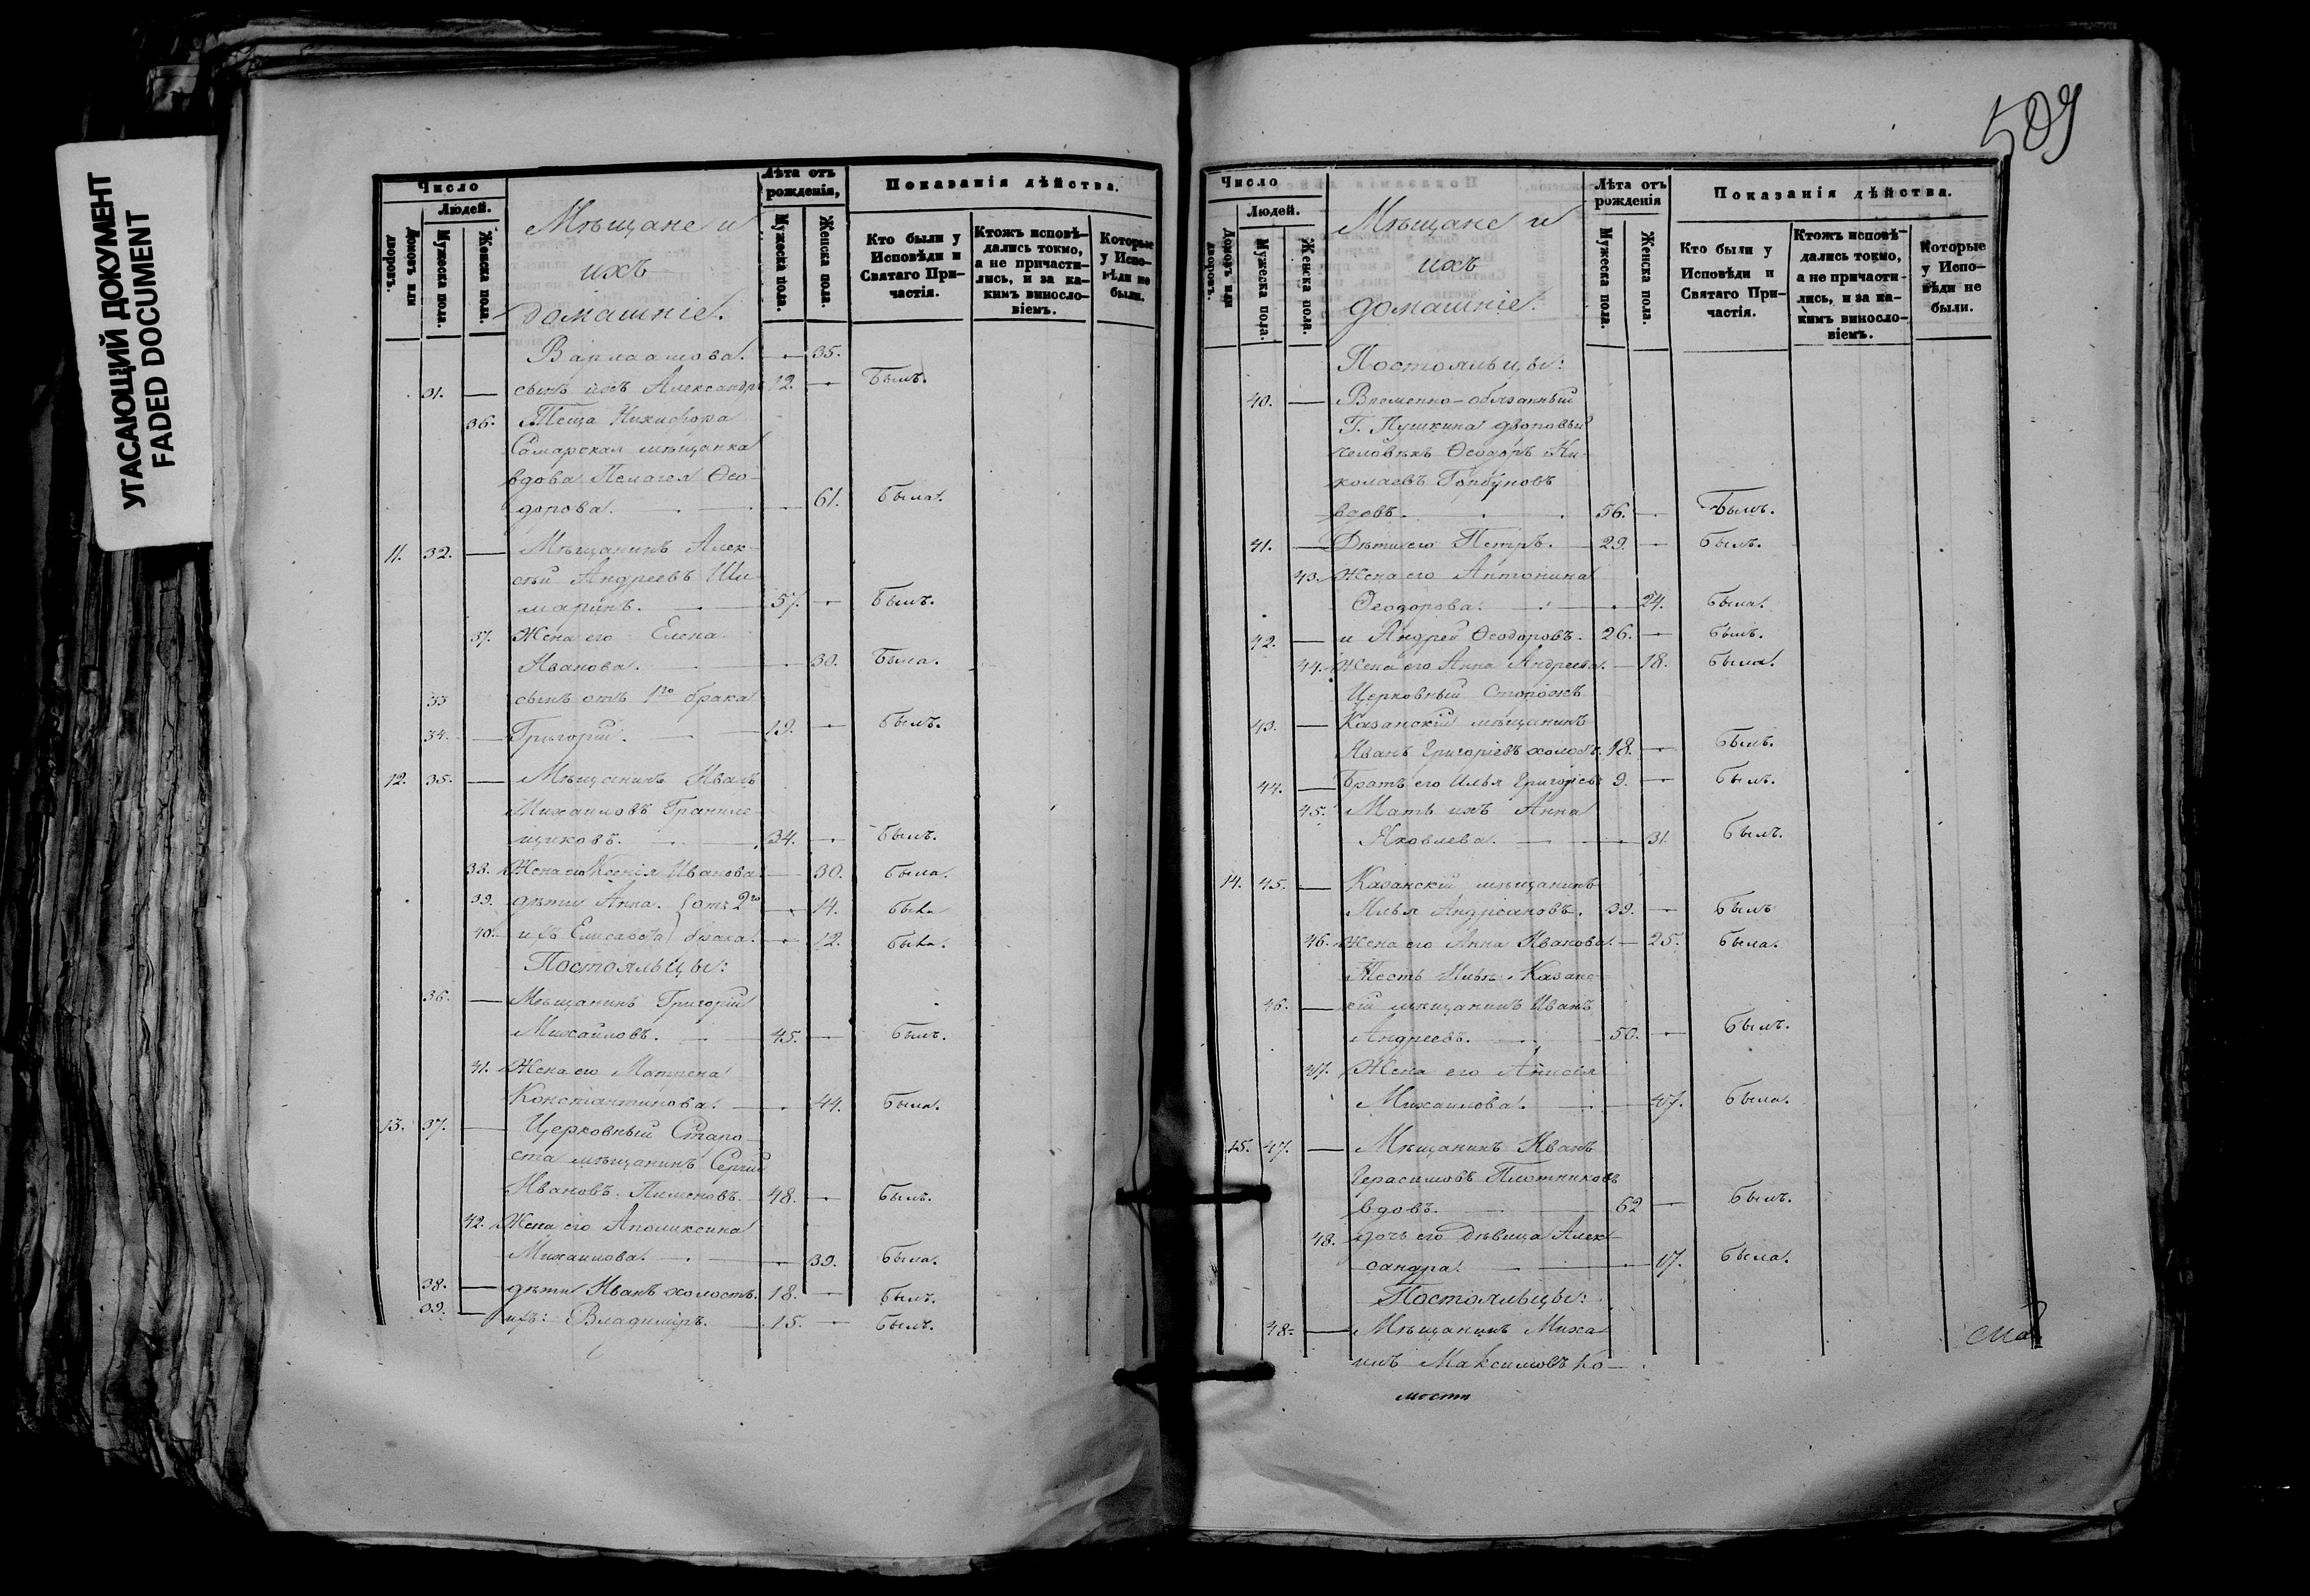 УГАСАЮЩИЙ ДОКУМЕНТ
FADED DOCUMENT
Число
Людей.
Домовъ или дворовъ.
Мужеска пола.
Женска пола.
Мѣщане и
ихъ
домашніе.
Лѣта отъ рожденія,
Мужеска пола.
Женска пола.
Показанія дѣйства.
Кто были у Исповѣди и Святаго Причастія.
Ктожъ исповѣдались токмо, а не причастились, и за какимъ винословіемъ.
Которые у Исповѣди не были.
Варлаамова. — 35.
31. — сынъ ихъ Александръ 12. — Былъ.
36. Теща Никифора
Самарская мѣщанка
вдова Пелагея Ѳео-
дорова. — 61. Была.
11. 32. — Мѣщанинъ Алек-
сѣй Андреевъ Ши-
маринъ. — 57. — Былъ.
37. Жена его Елена
Иванова. — 30. Была.
33 сынъ отъ 1го брака
34. — Григорій. — 19. — былъ.
12. 35. — Мѣщанинъ Иванъ
Михаиловъ
щиковъ. — 34. — былъ.
38. Жена его Ксенія Иванова — 30. была.
39. дѣти Анна. отъ 2го — 14. была
40. ихъ Елисавета брака. — 12. была.
Постояльцы:
36. — Мѣщанинъ Григорій
Михайловъ. — 45. — былъ.
41. Жена его Матрена
Константинова. — 44. была.
13. 37. — Церковный Старо-
ста мѣщанинъ Сергій
Ивановъ Пименовъ. 48. — былъ.
42. Жена его
Михаилова. — 39. была.
38. — дѣти Иванъ холостъ. 18. — былъ.
39. — ихъ: Владиміръ. 15. — былъ.
509
Число
Людей.
Домовъ или дворовъ.
Мужеска пола.
Женска пола.
Мѣщане и
ихъ
домашніе.
Лѣта отъ рожденія
Мужеска пола.
Женска пола.
Показанія дѣйства.
Кто были у Исповѣди и Святаго Причастія.
Ктожъ исповѣдались токмо, а не причастились, и за какимъ винословіемъ.
Которые у Исповѣди не были.
Постояльцы:
40. — Временно-обязанный
Г. Пушкина дворовый
человѣкъ Ѳеодоръ Ни-
колаевъ Горбуновъ
вдовъ. 56. — Былъ.
41. — Дѣти его Петръ. 29. — былъ.
43. Жена его Антонина
Ѳеодорова. — 24. была.
42. — и Андрей Ѳеодоровъ. 26. — былъ.
44. Жена его Анна Андреева. — 18. была.
Церковный Сторожъ
43. — Казанскій мѣщанинъ
Иванъ Григоріевъ холостъ. 18. — былъ.
44. — Братъ его Илья Григорьевъ 9. — былъ.
45. Мать ихъ Анна
Яковлева. — 31 былъ.
14. 45. — Казанскій мѣщанинъ
Илья Андреановъ. 39. — былъ
46. Жена его Анна Иванова. — 25. была.
Тесть Ильи Казанс-
46. — кій мѣщанинъ Иванъ
Андреевъ. 50. — былъ.
47. Жена его Анисія
Михаилова. — 47. была.
15. 47. — Мѣщанинъ Иванъ
Герасимовъ Плотниковъ
вдовъ. — 62 — былъ.
48. дочь его дѣвица Алек-
сандра. — 17. была.
Постояльцы:
48. — Мѣщанинъ Миха-
илъ Максимовъ Ко-